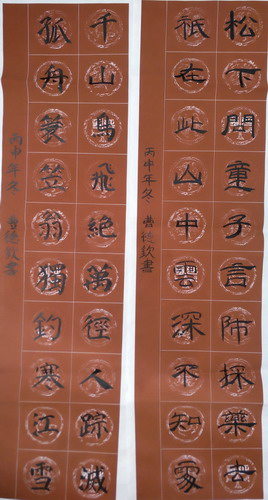 松下問童子言師採藥去
祇在此山中雲深不知處
丙申年冬 曹德書
千山鳥飛絕萬徑人踪滅
孤舟簑笠翁獨釣寒江雪
丙申年冬 曹德書